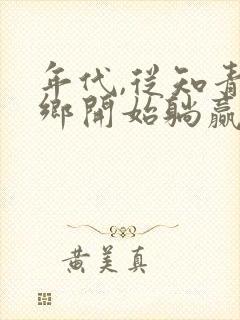 年代,從知青
鄉開始躺贏
黃美真